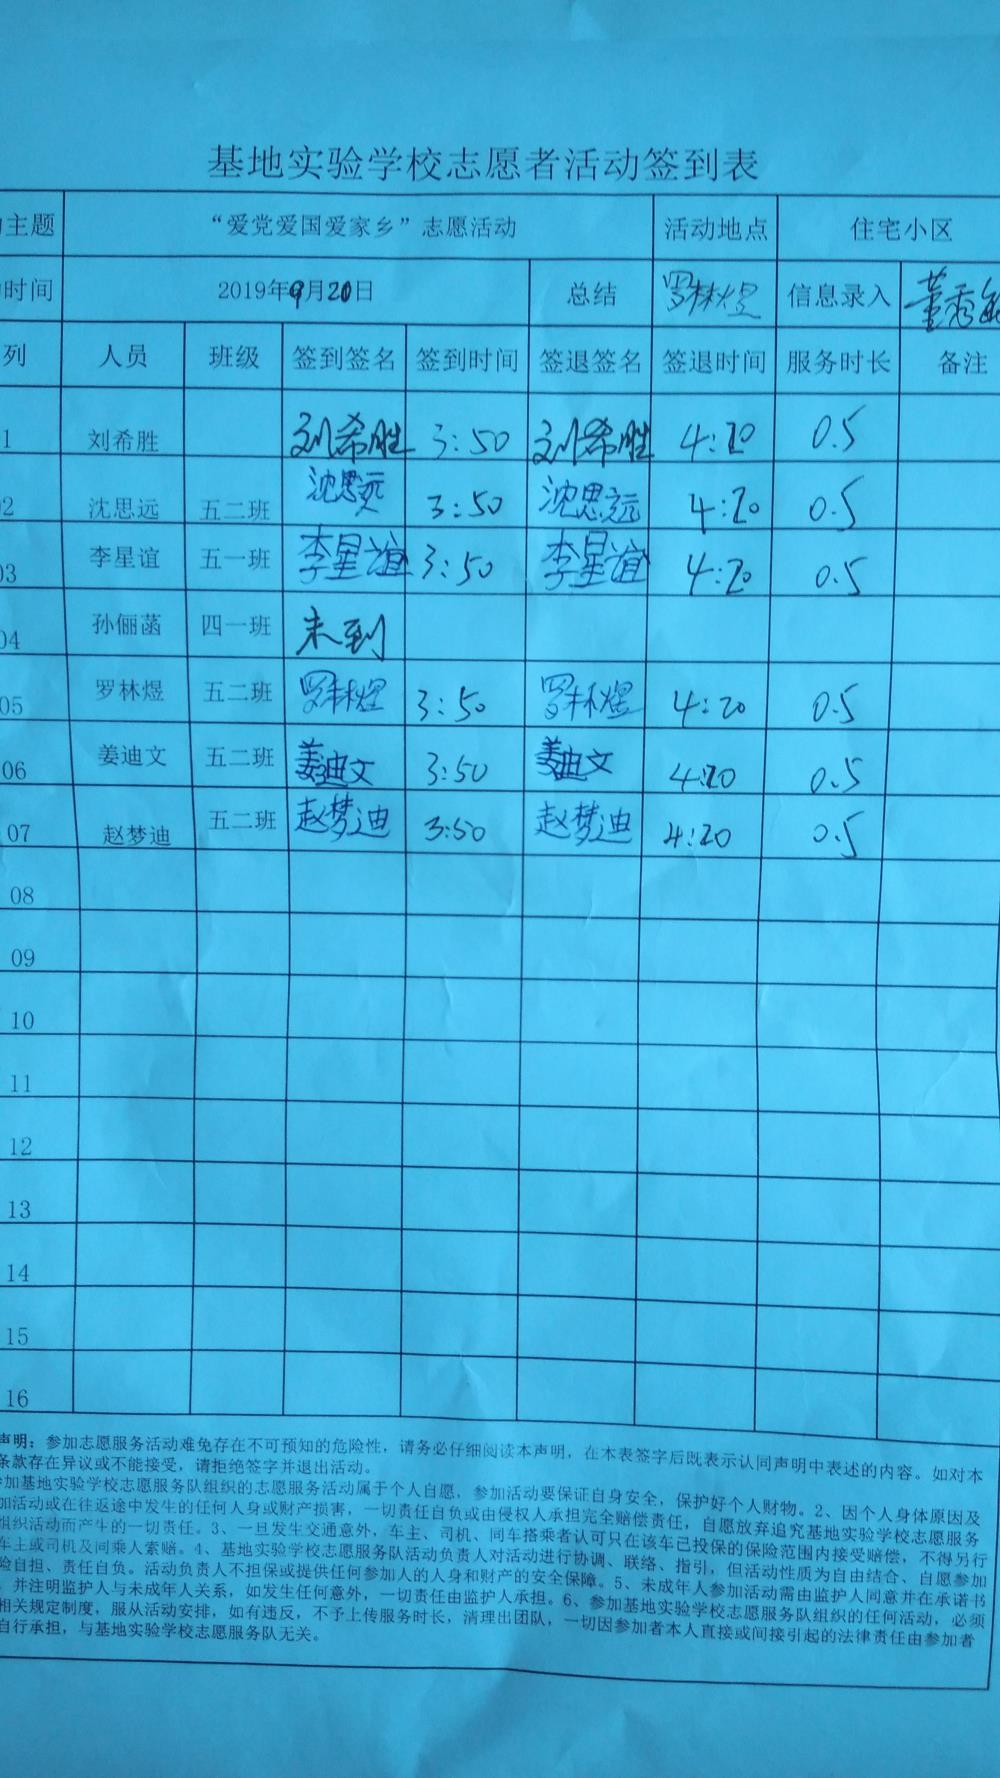 基地实验学校志愿者活动签到表
主题 “爱党爱国爱家乡”志愿活动 活动地点 住宅小区
时间 2019年9月20日 总结 罗林煜 信息录入 董秀敏
列 人员 班级 签到签名 签到时间 签退签名 签退时间 服务时长 备注
1 刘希胜 刘希胜 3:50 刘希胜 4:20 0.5
02 沈思远 五二班 沈思远 3:50 沈思远 4:20 0.5
03 李星谊 五一班 李星谊 3:50 李星谊 4:20 0.5
04 孙俪菡 四一班 未到
05 罗林煜 五二班 罗林煜 3:50 罗林煜 4:20 0.5
06 姜迪文 五二班 姜迪文 3:50 姜迪文 4:20 0.5
07 赵梦迪 五二班 赵梦迪 3:50 赵梦迪 4:20 0.5
08
09
10
11
12
13
14
15
16
声明：参加志愿服务活动难免存在不可预知的危险性，请务必仔细阅读本声明，在本表签字后既表示认同声明中表述的内容。如对本
条款存在异议或不能接受，请拒绝签字并退出活动。
参加基地实验学校志愿服务队组织的志愿服务活动属于个人自愿，参加活动要保证自身安全，保护好个人财物。2、因个人身体原因及
加活动或在往返途中发生的任何人身或财产损害，一切责任自负或由侵权人承担完全赔偿责任，自愿放弃追究基地实验学校志愿服务
组织活动而产生的一切责任。3、一旦发生交通意外，车主、司机、同车搭乘者认可只在该车已投保的保险范围内接受赔偿，不得另行
车主或司机及同乘人索赔。4、基地实验学校志愿服务队活动负责人对活动进行协调、联络、指引，但活动性质为自由结合、自愿参加
险自担、责任自负。活动负责人不担保或提供任何参加人的人身和财产的安全保障。5、未成年人参加活动需由监护人同意并在承诺书
，并注明监护人与未成年人关系，如发生任何意外，一切责任由监护人承担。6、参加基地实验学校志愿服务队组织的任何活动，必须
相关规定制度，服从活动安排，如有违反，不予上传服务时长，清理出团队，一切因参加者本人直接或间接引起的法律责任由参加者
自行承担，与基地实验学校志愿服务队无关。